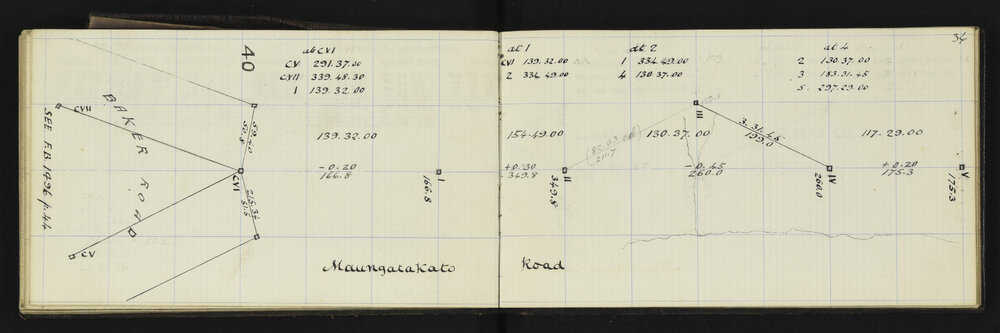 40
at CVI
CV 291.37.00
CVII 339.48.30
I 139.32.00
CVII
BAKER ROAD
SEE F.B. 1496 p.44
CVI
CV
139.32.00
- 0.20
166.8
I
166.8
Maungatakato Road
34
at 1
CVI 139.32.00
2 334.49.00
at 2
1 334.49.00
4 130.37.00
at 4
2 130.37.00
3 183.31.45
5 297.29.00
154.49.00
+ 0.30
349.8
II
349.8
82.03.00
211.7
III
130.37.00
- 0.45
260.0
3.31.45
199.0
IV
260.0
117.29.00
+ 0.20
175.3
V
175.3